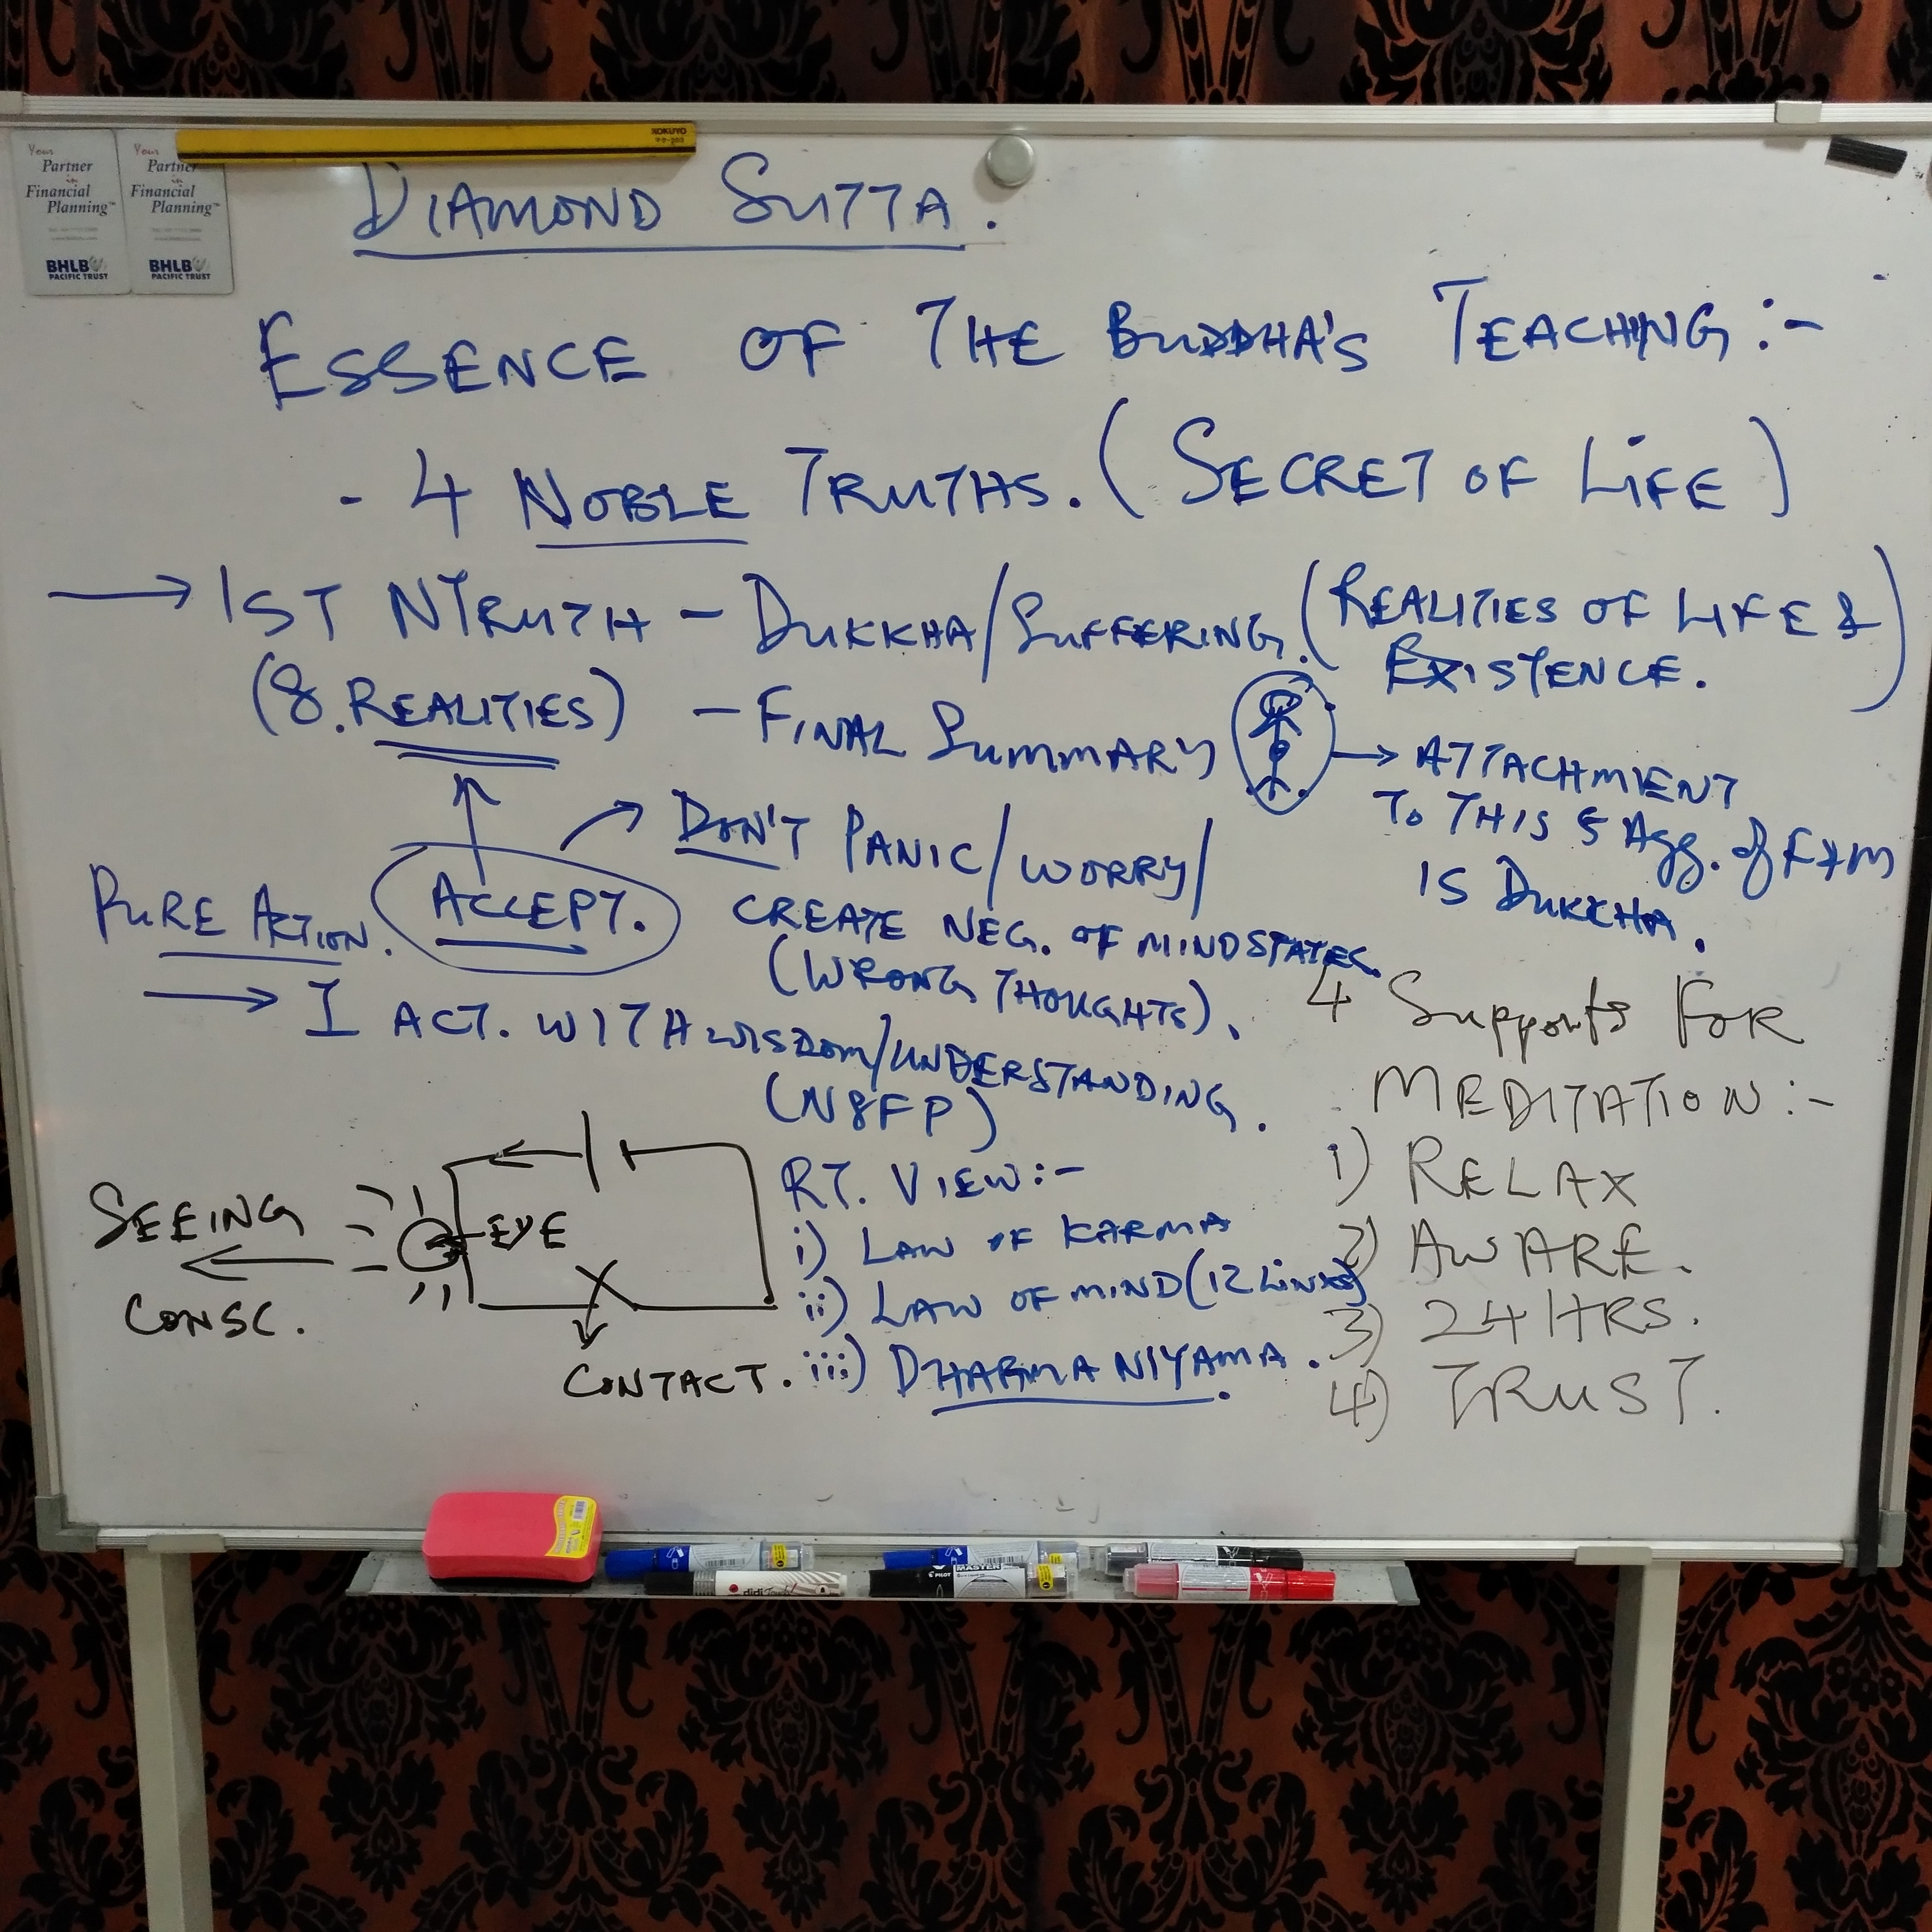 Your
Partner
in
Financial
Planning™
BHLB
PACIFIC TRUST
Your
Partner
in
Financial
Planning™
BHLB
PACIFIC TRUST
KOKUYO
DIAMOND SUTTA.
ESSENCE OF THE BUDDHA'S TEACHING:-
- 4 NOBLE TRUTHS. (SECRET OF LIFE)
→ 1ST NTRUTH - DUKKHA/SUFFERING. (REALITIES OF LIFE & EXISTENCE.)
(8. REALITIES) - FINAL SUMMARY → ATTACHMENT
TO THIS 5 Agg. of F+M
IS DUKKHA.
PURE ACTION. ACCEPT. → DON'T PANIC/WORRY/
CREATE NEG. OF MINDSTATES.
(WRONG THOUGHTS).
→ I ACT. WITH WISDOM/UNDERSTANDING.
(N8FP)
RT. VIEW:-
i) LAW OF KARMA
ii) LAW OF MIND (12 LINKS)
iii) DHARMA NIYAMA.
SEEING
CONSC.
EYE
CONTACT.
4 Supports FOR
MEDITATION:-
1) RELAX
2) AWARE.
3) 24 HRS.
4) TRUST.
PILOT
MASTER